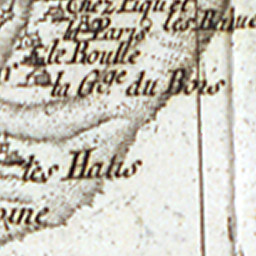 Chez Piquet
la Paris
le Boulle
la G.ge du Bois
les Hatis
oine